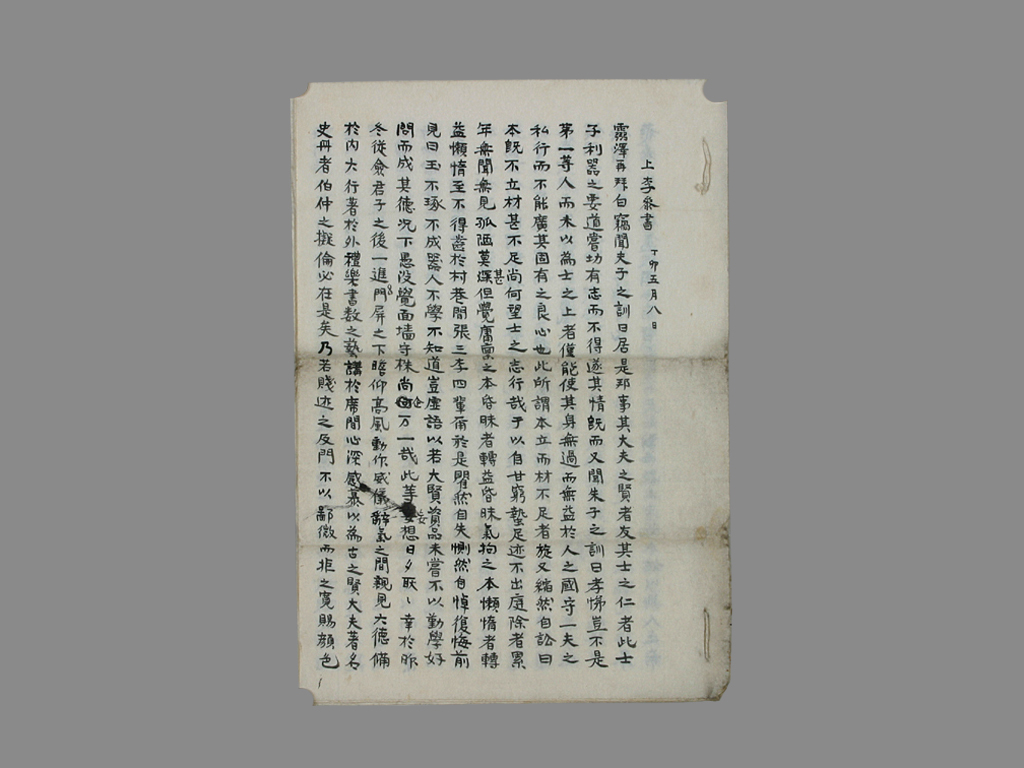 上李參書 丁卯五月八日
霽澤再拜白竊聞夫子之訓曰居是邦事其大夫之賢者友其士之仁者此士
子利器之要道嘗切有志而不得遂其情旣而又聞朱子之訓曰孝悌豈不是
第一等人而未以為士之上者僅能使其身無過而無益於人之國守一夫之
私行而不能廣其固有之良心也此所謂本立而材不足者旋又縮然自訟曰
本旣不立材甚不足尚何望士之志行哉于以自甘窮蟄足迹不出庭除者累
年無聞無見孤陋莫甚但覺庸稟之本昏昧者轉益昏昧氣拘之本懶惰者轉
益懶惰至不得齒於村巷間張三李四輩爾於是瞿然自失惻然自悼復悔前
見曰玉不琢不成器人不學不知道豈虛語以若大賢資品未嘗不以勤學好
問而成其德况下愚沒覺面墻守株尚企万一哉此等妄想日夕耿〻幸於昨
冬從僉君子之後一進門屏之下瞻仰高風動作威儀辭氣之間親見大德備
於內大行著於外禮樂書数之藝講於席間心深感慕以為古之賢大夫著名
史冊者伯仲之擬倫必在是矣乃若賤迹之及門不以鄙微而拒之寬賜顔色
1